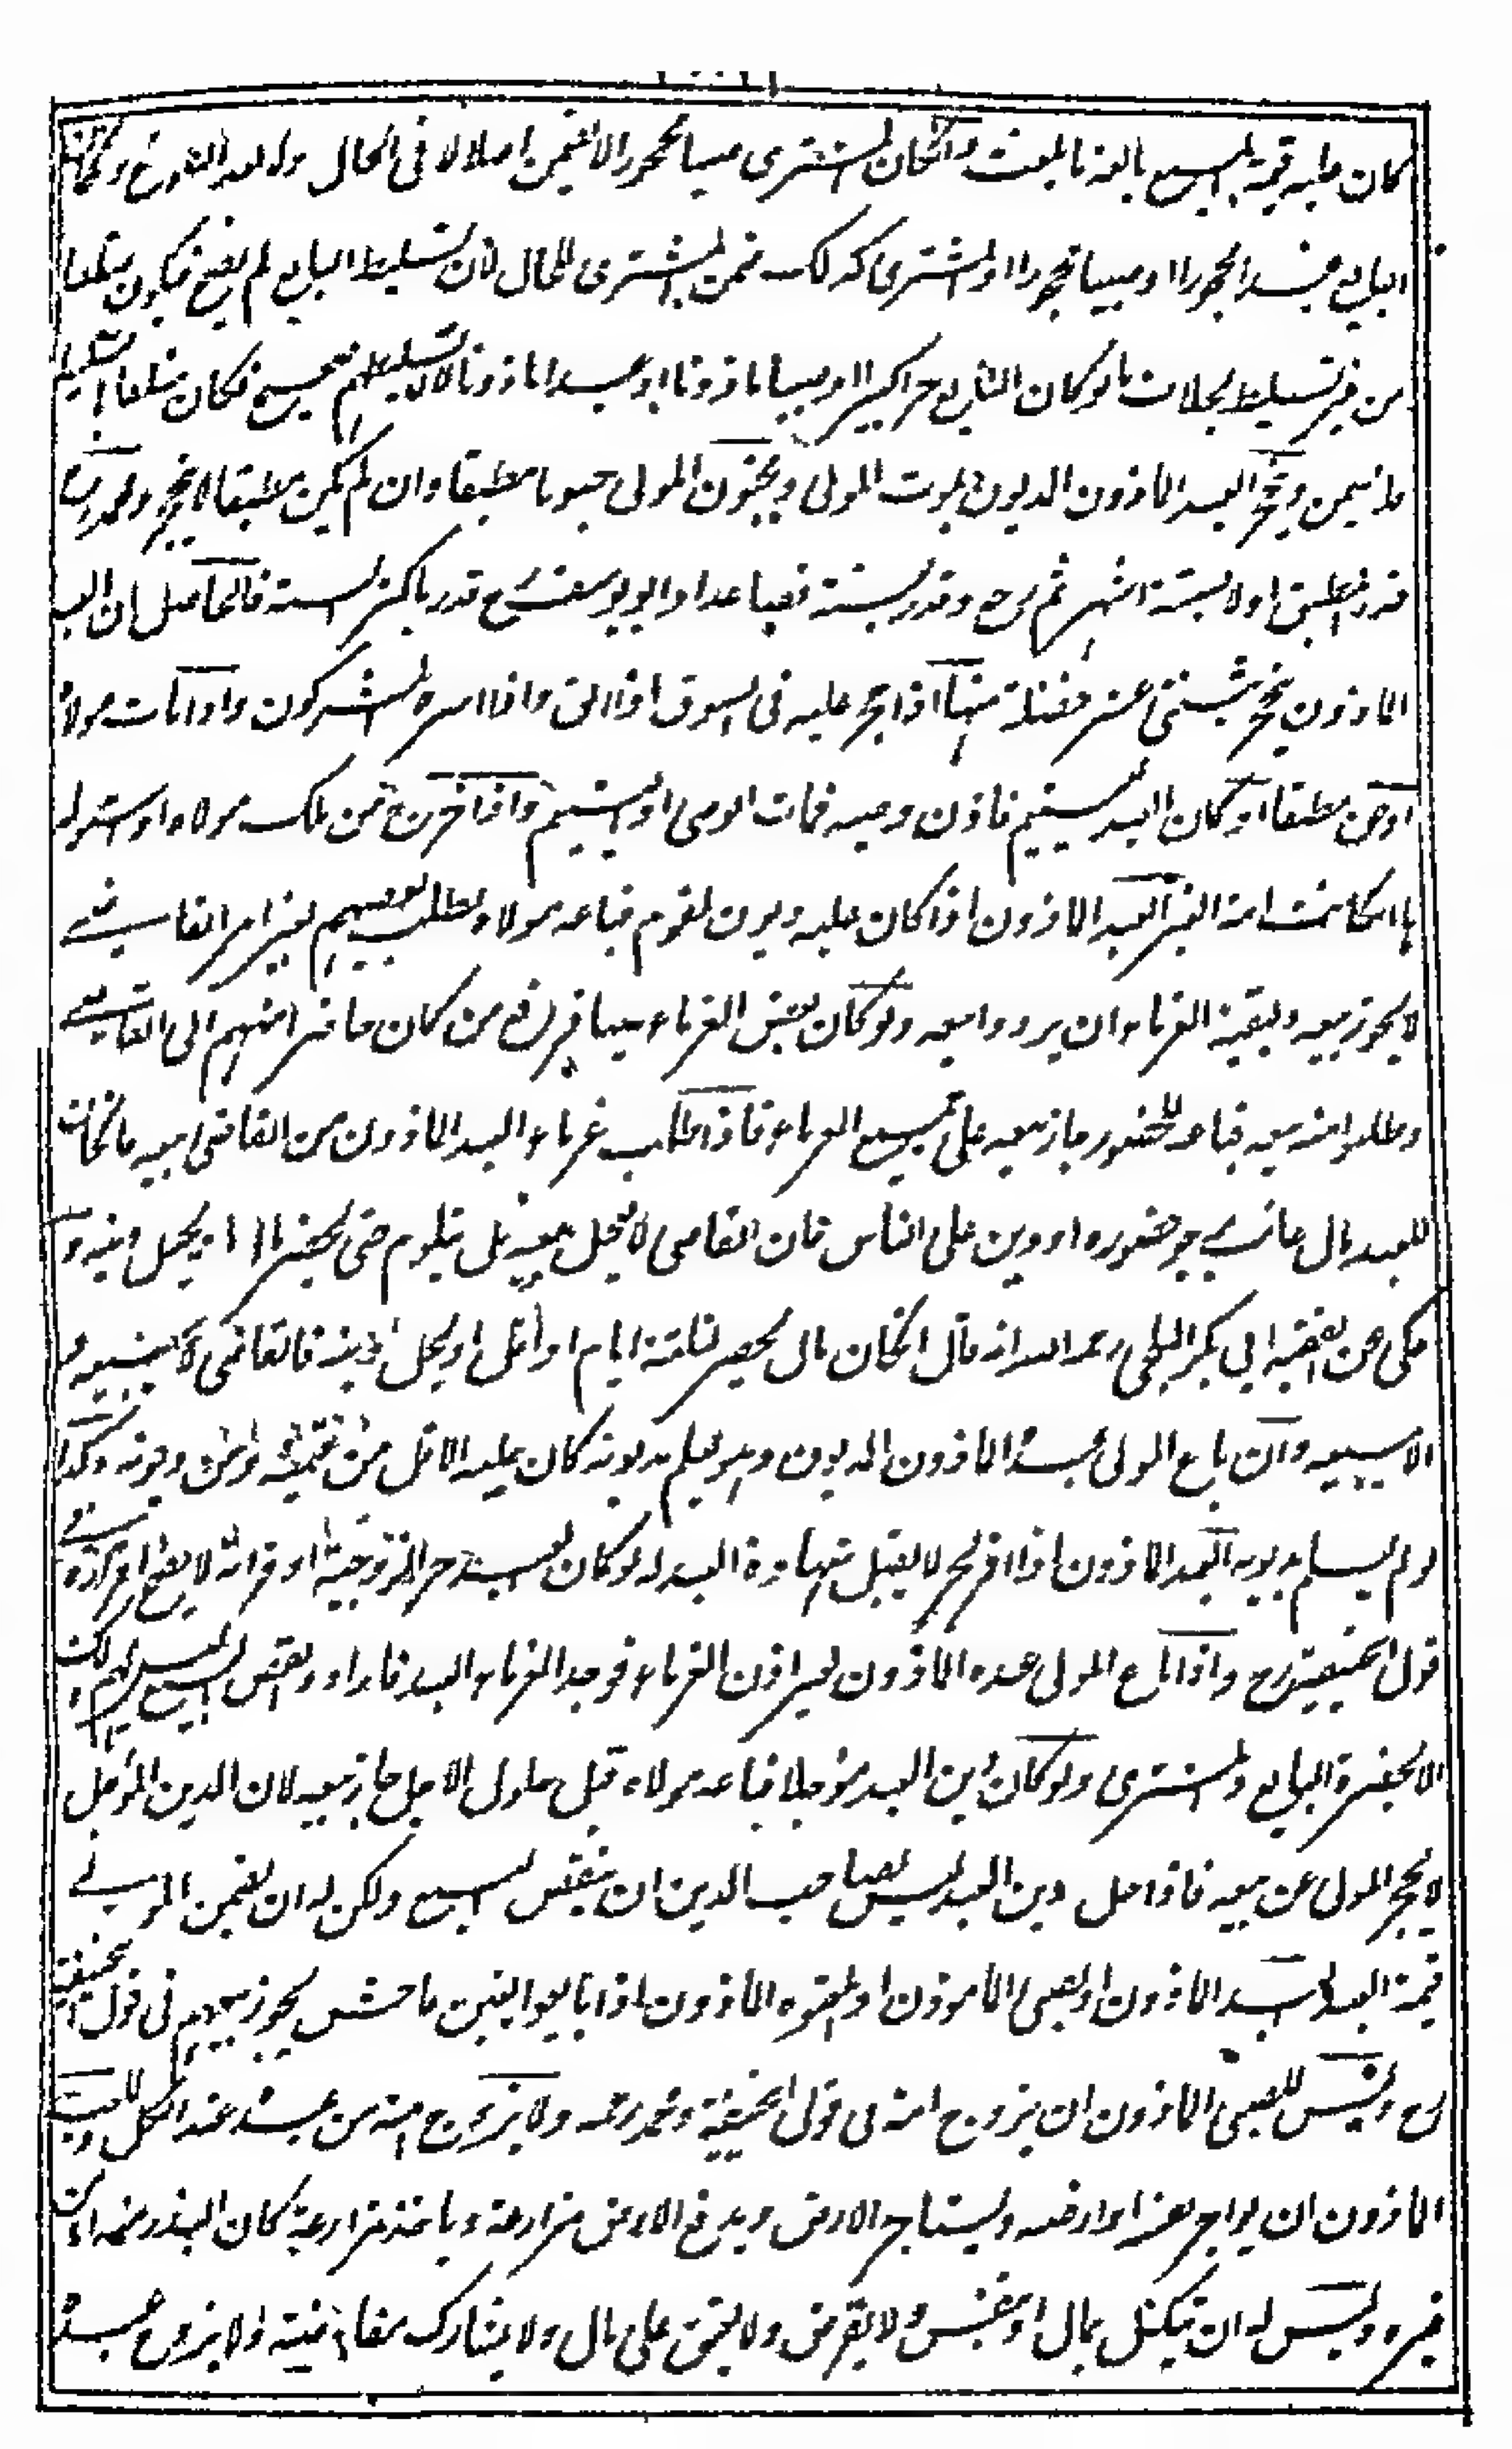 كان عليه قيمة المبيع بالغة ما بلغت وان كان المشترى صبيا محجورا لا يضمن اصلا لا فى الحال ولا بعد البلوغ وان كان
البايع عبدا محجورا او صبيا محجورا والمشترى كذلك ضمن المشترى للحال لان تسليط البايع لم يصح فيكون متلفا
من غير تسليط بخلاف ما لو كان البايع حرا كبيرا او صبيا ماذونا او عبدا ماذونا لان تسليطهم صحيح فكان متلفا بتسليط
فلا يضمن ويحجر العبد الماذون المديون بموت المولى وبجنون المولى جنونا مطبقا وان لم يكن مطبقا لا يحجر ومحمد رح
قدر المطبق اولا بستة اشهر ثم رجع وقدر بسنة فصاعدا وابو يوسف رح قدر باكثر السنة فالحاصل ان العبد
الماذون يحجر باثنتى عشر خصلة منها اذا حجر عليه فى السوق اذا ابق واذا اسره المشركون واذا مات مولاه
او جن مطبقا او كان العبد ليتيم فاذن وصيه فمات الوصى او اليتيم واذا خرج من ملك مولاه او استولد
ها ان كانت امة العبد الماذون اذا كان عليه ديون لقوم فباعه مولاه بطلب بعضهم بغير امر القاضى
لا يجوز بيعه ولبقية الغرماء ان يردوا بيعه ولو كان بعض الغرماء غيبا فرفع من كان حاضرا منهم الى القاضى
وطلبوا منه بيعه فباعه للحضور جاز بيعه على جميع الغرماء فاذا طلب غرماء العبد الماذون من القاضى بيعه فان كان
للعبد مال غائب يرجو حضوره او دين على الناس فان القاضى لا يعجل ببيعه بل يتلوم حتى يحضر المال او يحل دينه و
حكى عن الفقيه ابى بكر البلخى رحمه الله انه قال ان كان مال يحضر لثلثة ايام او اقل او يحل دينه فالقاضى لا يبيعه و
الا يبيعه وان باع المولى عبده الماذون المديون وهو يعلم بديونه كان عليه الاقل من قيمته ومن ديونه وكذا
لو لم يعلم بديونه العبد الماذون اذا اقر لحر لا يقبل شهادة العبد له لو كان لعبيد حر او لزوجته او قرابة لا يصح اقراره فى
قول ابى حنيفة رح واذا باع المولى عبده الماذون بغير اذن الغرماء فوجد الغرماء العبد فارادوا نقض البيع ليس لهم ذلك
الا بحضرة البايع والمشترى ولو كان دين العبد مؤجلا فباعه مولاه قبل حلول الاجل جاز بيعه لان الدين المؤجل
لا يحجر المولى عن بيعه فاذا حل دين العبد ليس لصاحب الدين ان ينقض البيع ولكن له ان يضمن المولى
قيمة العبد العبد الماذون او الصبى الماذون او المعتوه الماذون اذا بايعوا بغبن فاحش يجوز بيعهم فى قول ابى حنيفة
رح وليس للصبى الماذون ان يزوج امته فى قول ابى حنيفة ومحمد رحمه ولا يزوج امته من عبده عند الكل وللعبد
الماذون ان يواجر نفسه او ارضه ويستاجر الارض ويدفع الارض مزارعة وياخذ مزارعة كان البذر منه او من
غيره وليس له ان يتكفل بمال او بنفس ولا يقرض ولا يعتق على مال ولا يشارك مفاوضة ولا يزوج عبده